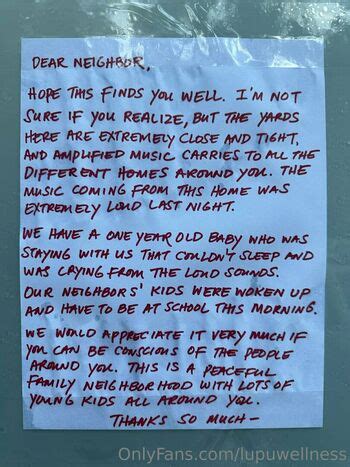 DEAR NEIGHBOR,
HOPE THIS FINDS YOU WELL. I'M NOT
SURE IF YOU REALIZE, BUT THE YARDS
HERE ARE EXTREMELY CLOSE AND TIGHT,
AND AMPLIFIED MUSIC CARRIES TO ALL THE
DIFFERENT HOMES AROUND YOU. THE
MUSIC COMING FROM THIS HOME WAS
EXTREMELY LOUD LAST NIGHT.
WE HAVE A ONE YEAR OLD BABY WHO WAS
STAYING WITH US THAT COULDN'T SLEEP AND
WAS CRYING FROM THE LOUD SOUNDS.
OUR NEIGHBORS' KIDS WERE WOKEN UP
AND HAVE TO BE AT SCHOOL THIS MORNING.
WE WOULD APPRECIATE IT VERY MUCH IF
YOU CAN BE CONSCIOUS OF THE PEOPLE
AROUND YOU. THIS IS A PEACEFUL
FAMILY NEIGHBORHOOD WITH LOTS OF
YOUNG KIDS ALL AROUND YOU.
THANKS SO MUCH-
OnlyFans.com/lupuwellness